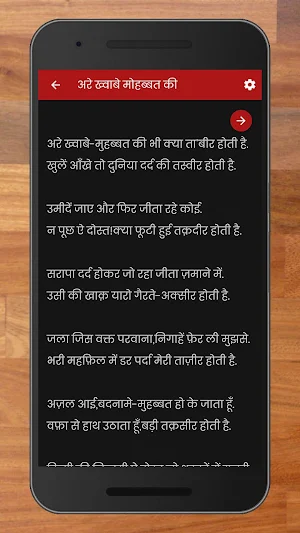 अरे ख्वाबे मोहब्बत की
अरे ख्वाबे-मुहब्बत की भी क्या ता'बीर होती है.
खुलें आँखे तो दुनिया दर्द की तस्वीर होती है.
उमीदें जाए और फिर जीता रहे कोई.
न पूछ ऐ दोस्त!क्या फूटी हुई तक़दीर होती है.
सरापा दर्द होकर जो रहा जीता ज़माने में.
उसी की खाक़ यारो गैरते-अक्सीर होती है.
जला जिस वक्त परवाना,निगाहें फ़ेर ली मुझसे.
भरी महफ़िल में डर पर्दा मेरी ताज़ीर होती है.
अज़ल आई,बदनामे-मुहब्बत हो के जाता हूँ.
वफ़ा से हाथ उठाता हूँ,बड़ी तक़सीर होती है.